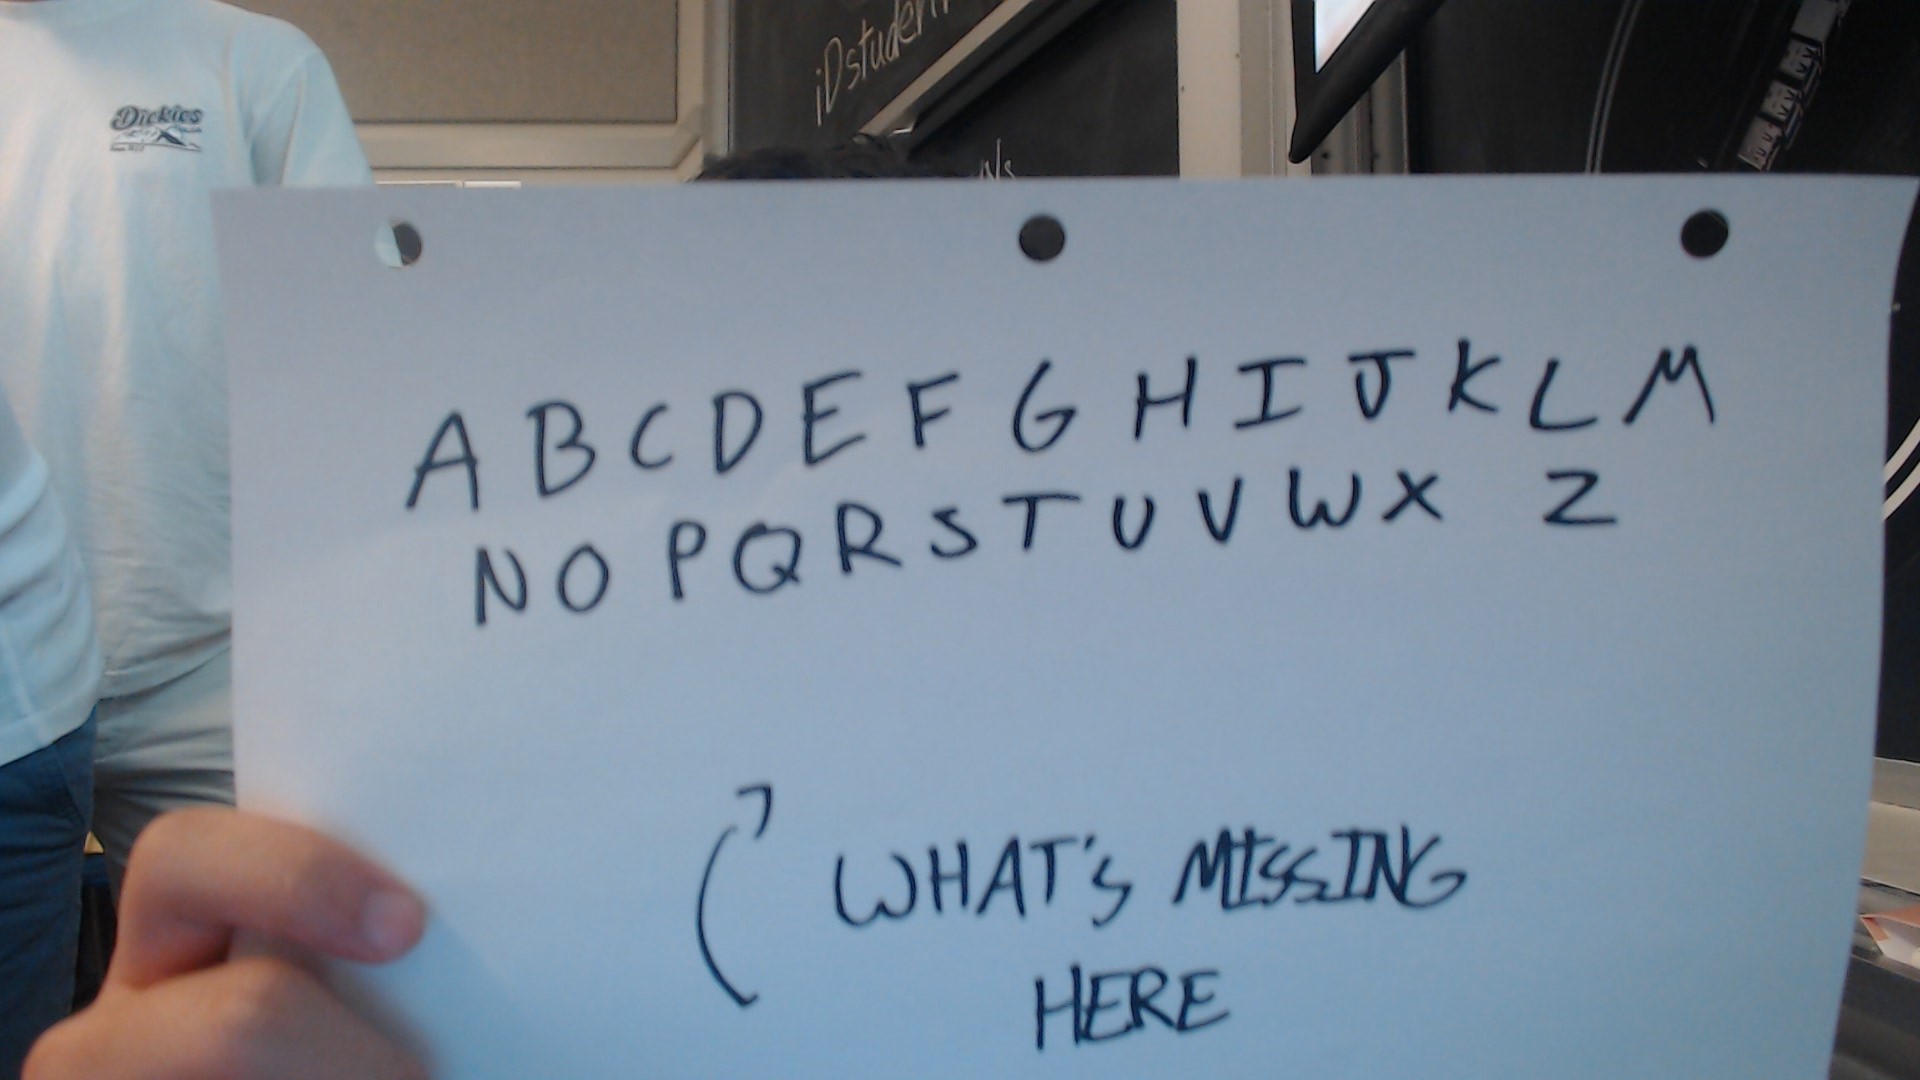 Dickies
iDstuden
A B C D E F G H I J K L M
N O P Q R S T U V W X Z
WHAT'S MISSING
HERE